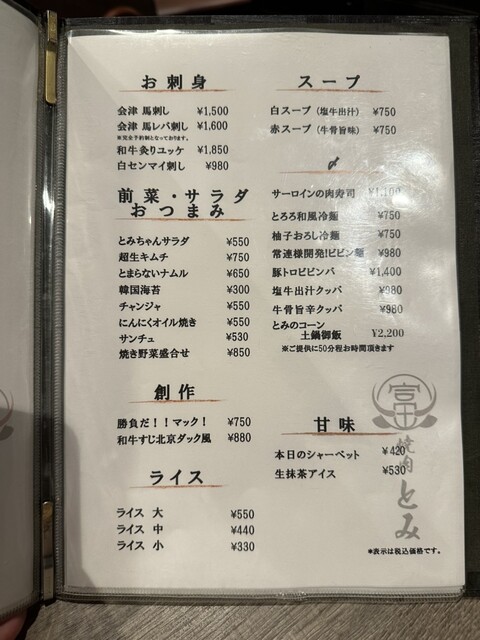 お刺身
会津 馬刺し ¥1,500
会津 馬レバ刺し ¥1,600
※完全予約制となっております。
和牛炙りユッケ ¥1,850
白センマイ刺し ¥980
前菜・サラダ
おつまみ
とみちゃんサラダ ¥550
超生キムチ ¥750
とまらないナムル ¥650
韓国海苔 ¥300
チャンジャ ¥550
にんにくオイル焼き ¥550
サンチュ ¥530
焼き野菜盛合せ ¥850
創作
勝負だ!!マック! ¥750
和牛すじ北京ダック風 ¥880
ライス
ライス 大 ¥550
ライス 中 ¥440
ライス 小 ¥330
スープ
白スープ (塩牛出汁) ¥750
赤スープ (牛骨旨味) ¥750
〆
サーロインの肉寿司 ¥1,100
とろろ和風冷麺 ¥750
柚子おろし冷麺 ¥750
常連様開発!ビビン麺 ¥980
豚トロビビンバ ¥1,400
塩牛出汁クッパ ¥980
牛骨旨辛クッパ ¥980
とみのコーン
土鍋御飯 ¥2,200
※ご提供に50分程お時間頂きます
甘味
本日のシャーベット ¥420
生抹茶アイス ¥530
富
焼肉とみ
*表示は税込価格です。